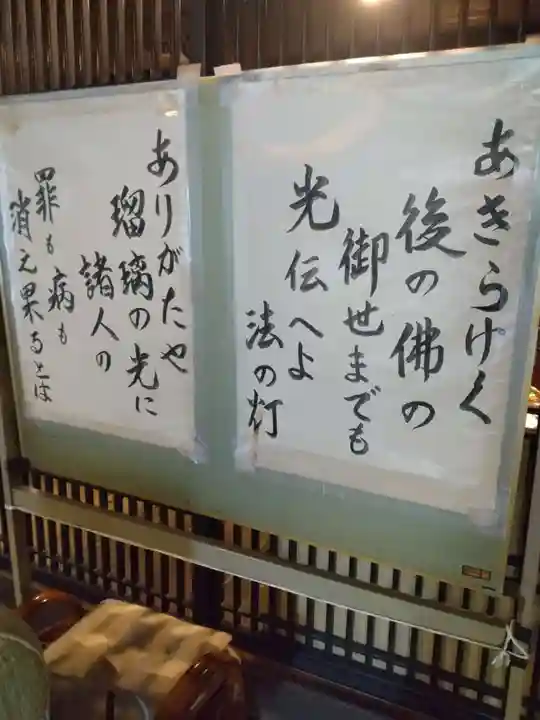 あきらけく
後の佛の
御世までも
光伝へよ
法の灯
ありがたや
瑠璃の光に
諸人の
罪も病も
消え果るとは